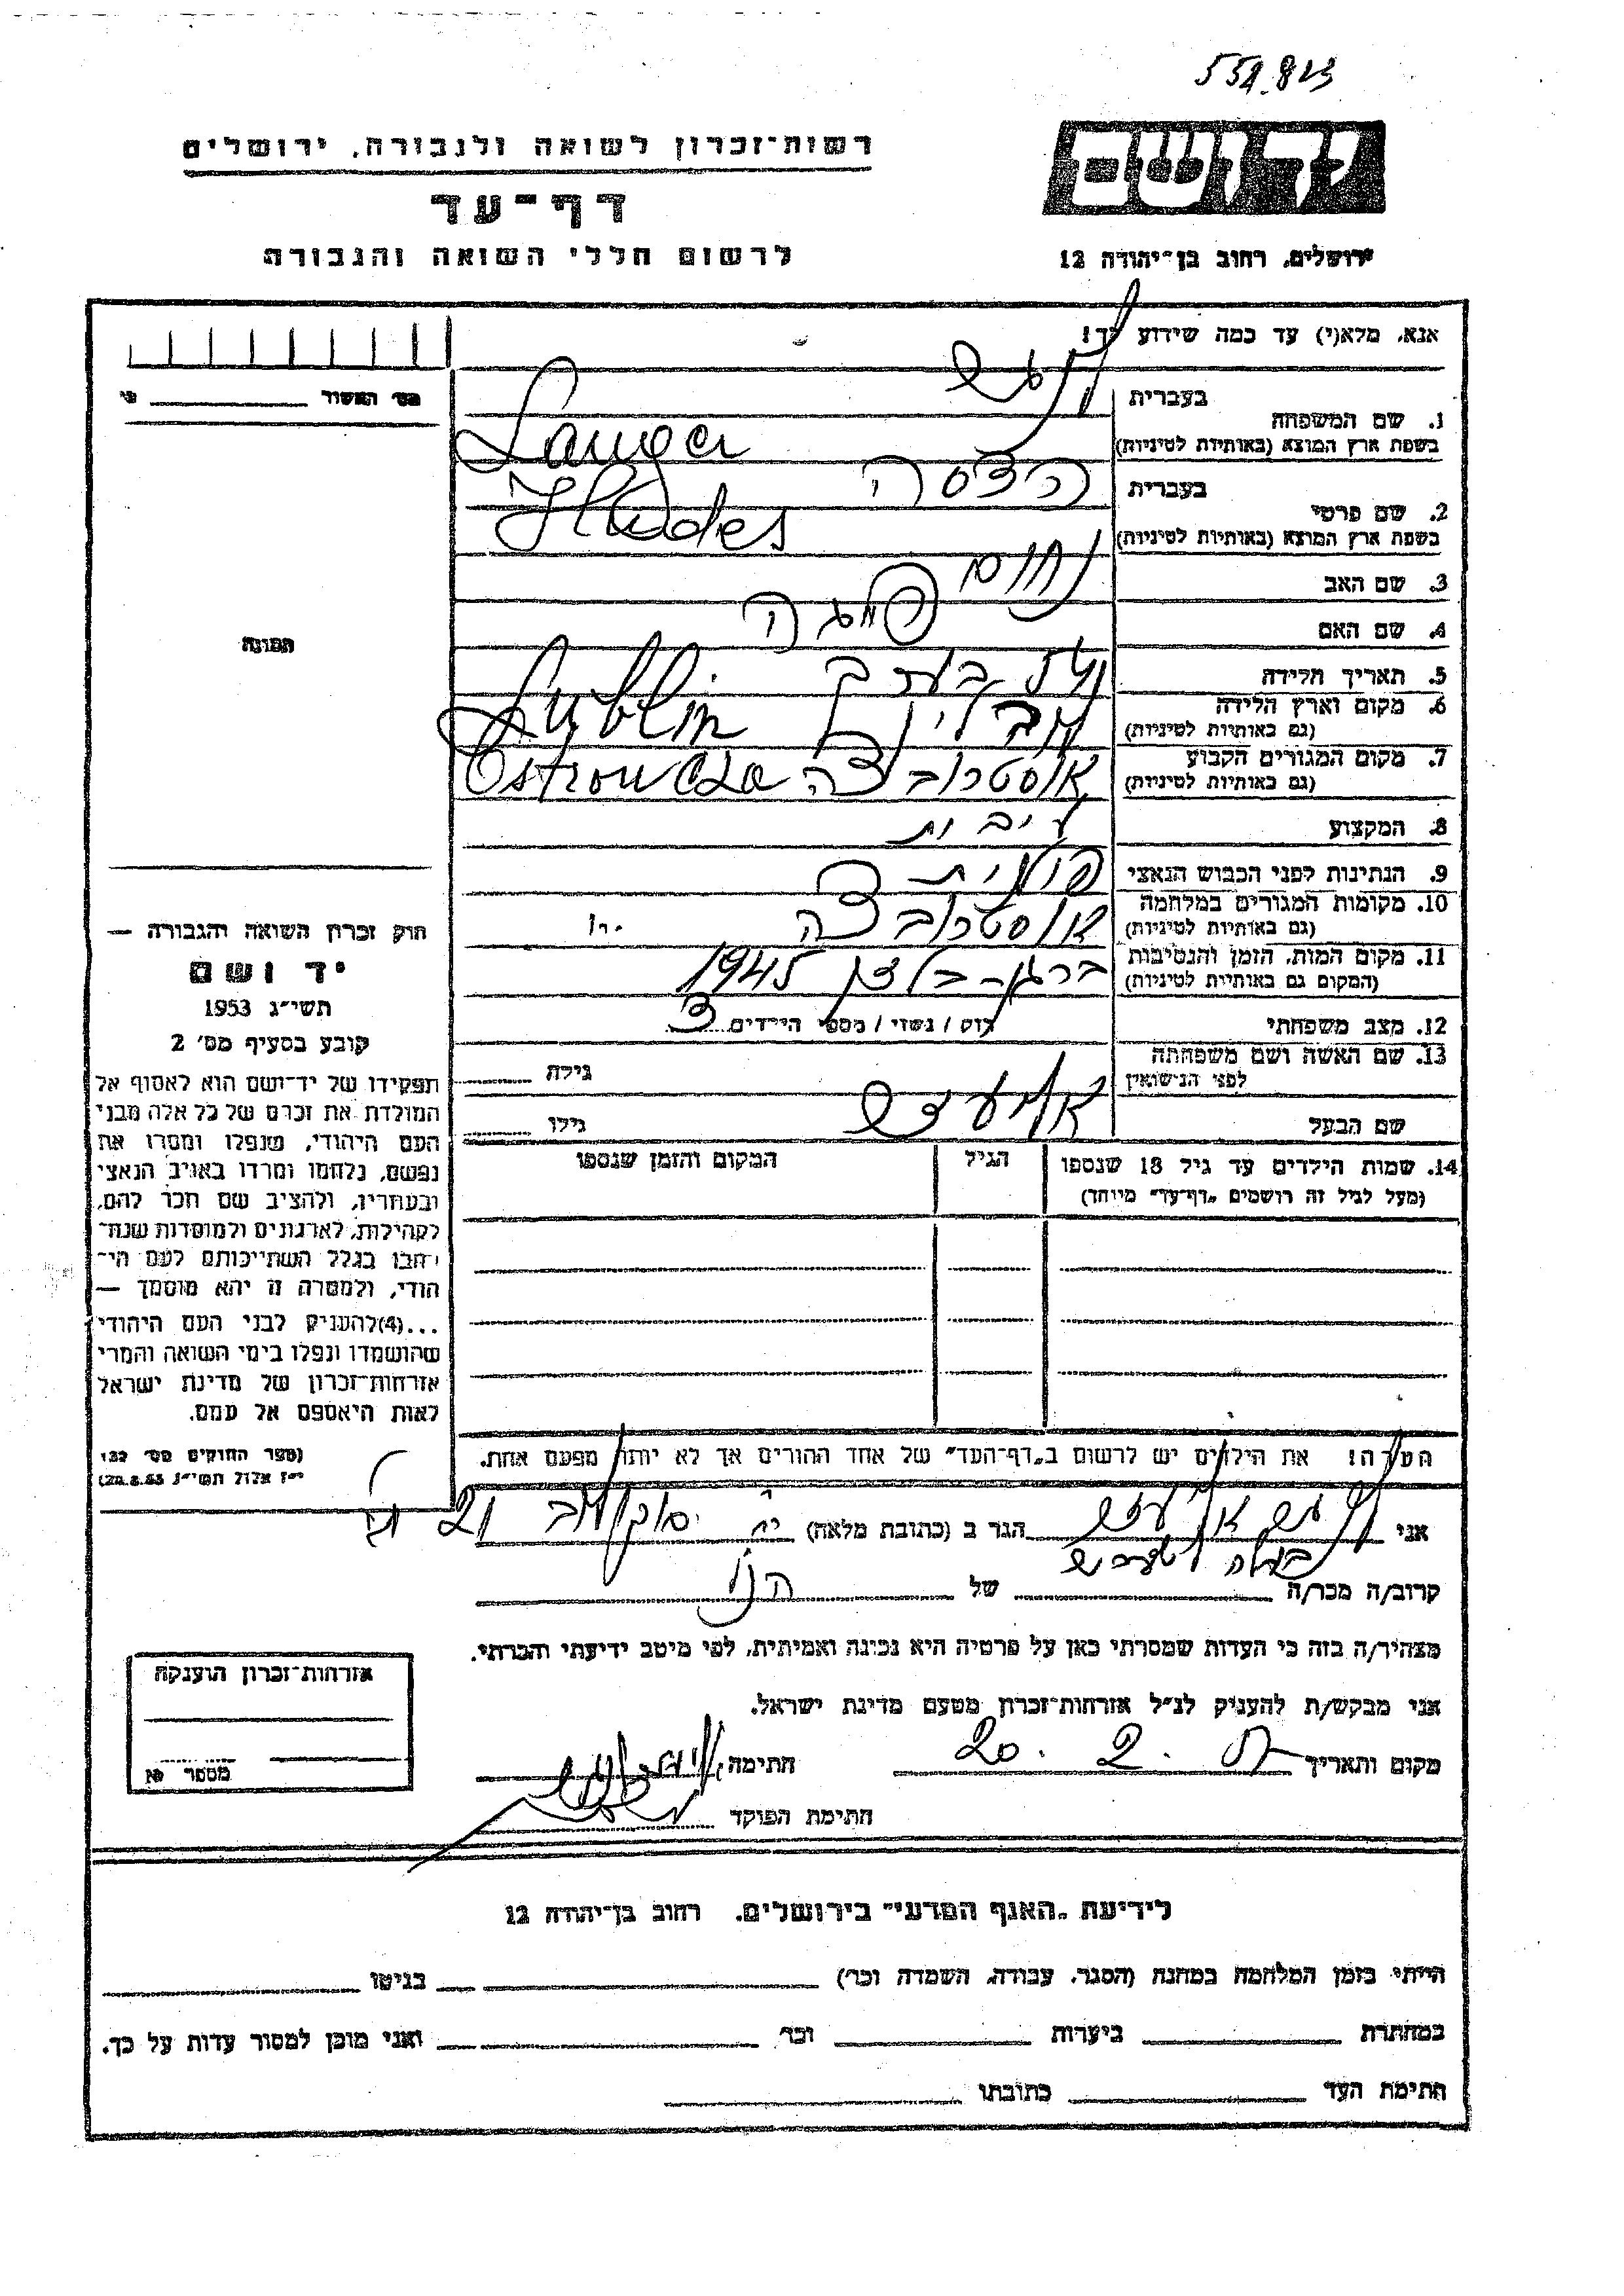 554.823
רשות־זכרון לשואה ולגבורה, ירושלים
דף־עד
לרשום חללי השואה והגבורה
ירושלים, רחוב בן־יהודה 12
אנא, מלא(י) עד כמה שידוע לך!
1. שם המשפחה
בעברית
בשפת ארץ המוצא (באותיות לטיניות) Langer
2. שם פרטי
בעברית הדסה
בשפת ארץ המוצא (באותיות לטיניות) Hudes
3. שם האב נחום
4. שם האם
5. תאריך הלידה
6. מקום וארץ הלידה
(גם באותיות לטיניות) לובלין Lublin
7. מקום המגורים הקבוע
(גם באותיות לטיניות) אוסטרובצה
8. המקצוע
9. הנתינות לפני הכבוש הנאצי פולנית
10. מקומות המגורים במלחמה
(גם באותיות לטיניות) אוסטרובצה
11. מקום המות, הזמן והנסיבות
(המקום גם באותיות לטיניות) ברגן־בלזן 1945
12. מצב משפחתי רוק / נשוי / מספר הילדים 3
13. שם האשה ושם משפחתה
לפני הנישואין גילה
שם הבעל גילו
14. שמות הילדים עד גיל 18 שנספו
(מעל לגיל זה רושמים "דף־עד" מיוחד)
הגיל
המקום והזמן שנספו
הערה! את הילדים יש לרשום ב"דף־העד" של אחד ההורים אך לא יותר מפעם אחת.
אני הגר ב (כתובת מלאה)
קרוב/ה מכר/ה של
מצהיר/ה בזה כי העדות שמסרתי כאן על פרטיה היא נכונה ואמיתית, לפי מיטב ידיעתי והכרתי.
אני מבקש/ת להעניק לנ"ל אזרחות־זכרון מטעם מדינת ישראל.
מקום ותאריך 20. 2. חתימה
חתימת הפוקד
מס' האשור
תמונה
חוק זכרון השואה והגבורה —
יד ושם
תשי"ג 1953
קובע בסעיף מס' 2
תפקידו של יד־ושם הוא לאסוף אל
המולדת את זכרם של כל אלה מבני
העם היהודי, שנפלו ומסרו את
נפשם, נלחמו ומרדו באויב הנאצי
ובעוזריו, ולהציב שם וזכר להם,
לקהילות, לארגונים ולמוסדות שנח־
רבו בגלל השתייכותם לעם הי־
הודי, ולמטרה זו יהא מוסמך —
...(4)להעניק לבני העם היהודי
שהושמדו ונפלו בימי השואה והמרי
אזרחות־זכרון של מדינת ישראל
לאות היאספם אל עמם.
(ספר החוקים מס' 132
י"ז אלול תשי"ג 28.8.53)
אזרחות־זכרון הוענקה
מספר
לידיעת "האגף המדעי" בירושלים, רחוב בן־יהודה 12
הייתי בזמן המלחמה במחנה (הסגר, עבודה, השמדה וכו') בגיטו
במחתרת ביערות וכו' ואני מוכן למסור עדות על כך.
חתימת העד כתובתו